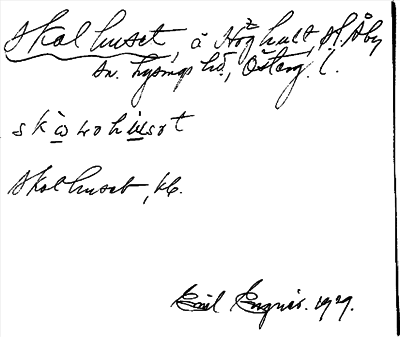 Skolhuset, å Höghult, St. Åby
sn. Lysings hd, Österg. l.
skωωohɯsət
Skolhuset, kb.
Emil Engnér. 1929.